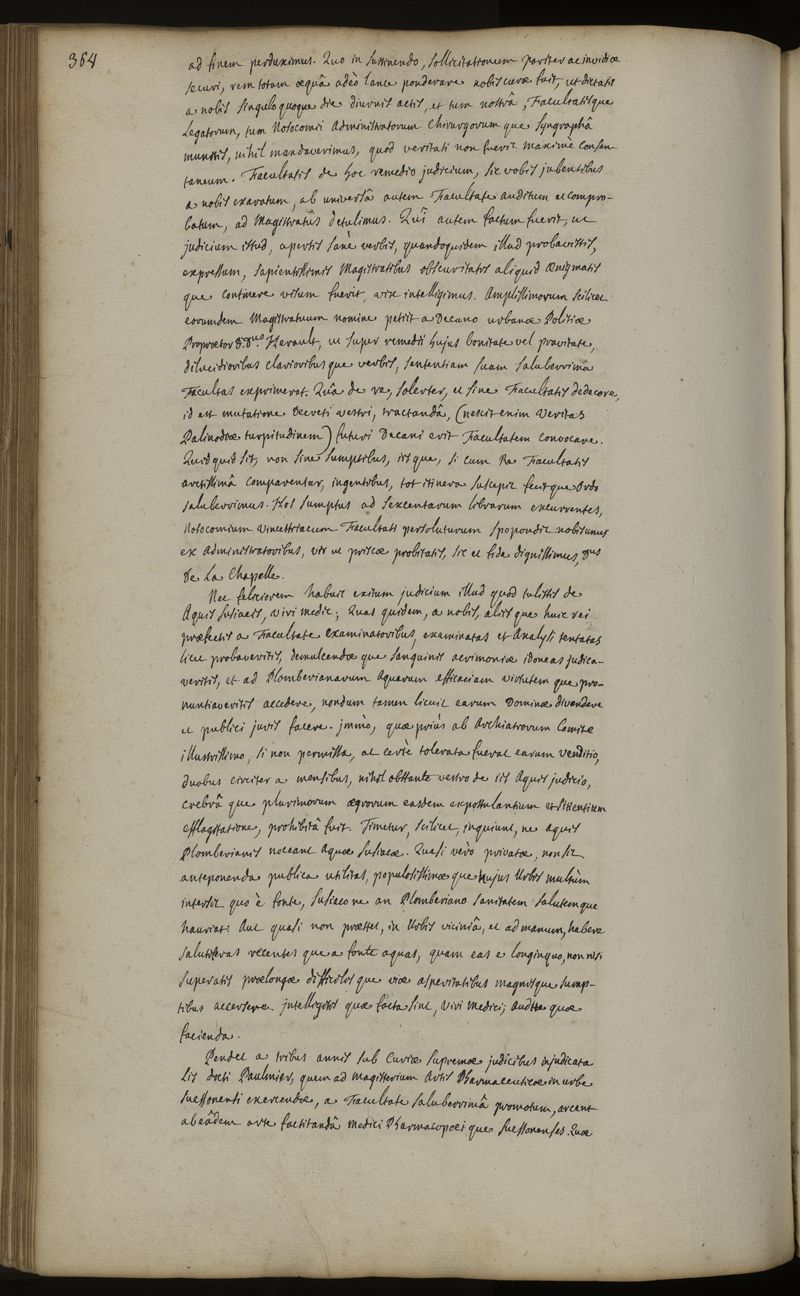 364
ad finem perduximus. Quo in sustinendo, sollicitationum pariter ac invidiæ
securi, rem totam æquâ adeò lance ponderare nobis curæ fuit, ut dictatis
a nobis singulo quoque die diurnis actis, et tum nostrâ, Facultatisque
Legatorum, tum Nosocomii Administratorum Chirurgorum que syngraphâ
munitis, nihil mandaverimus, quod veritati non fuerit maximè consen-
taneum. Facultatis de hoc remedio judicium, sic vobis jubentibus
a nobis exaratum, ab universâ autem Facultate auditum et compro-
batum, ad Magistratus detulimus. Quî autem factum fuerit, ut
judicium istud, apertis sanè verbis, quandoquidem illud probavistis,
expressum, sapientissimis Magistratibus obscuritatis aliquid ænigmatis
que continere visum fuerit, vix intelligimus. Amplissimorum scilicet
eorumdem Magistratuum nomine petiit a Decano urbanæ Politiæ
Proprætor D. Dnus Herault, ut super remedii hujus bonitate vel pravitate,
dilucidioribus clarioribus que verbis, sententiam suam saluberrima
Facultas exprimeret. Quâ de re, solerter, et sine Facultatis dedecore,
id est mutatione Decreti vestri, tractandâ, (nescit enim Veritas
Palinodiæ turpitudinem) futuri Decani erit Facultatem convocare.
Quidquid sit, non sine sumptibus, iisque, si cum Re Facultatis
arctissimâ comparentur, ingentibus, tot itinera suscepit fecitque Ordo
saluberrimus. Hos sumptus ad sexcentarum librarum excurrentes,
Nosocomium Vincestriacum Facultati persoluturum spopondit nobis unus
ex Administratoribus, vir ut priscæ probitatis, sic et fide dignissimus, Dnus
De La Chapelle.
Nec feliciorem habuit exitum judicium illud quod tulistis de
Aquis Susiacis, viri medici; Quas quidem, a nobis, aliis que huic rei
præfectis a Facultate examinatoribus, examinatas et Analysi tentatas
licet probaveritis, demulcendæ que sanguinis acrimoniæ idoneas judica-
veritis, et ad Plomberianarum Aquarum efficaciam virtutem que pro-
nuntiaveritis accedere, nondum tamen licuit earum Dominæ divendere
et publici juris facere. jmmò, quæ priùs ab Archiatrorum Comite
illustrissimo, si non permissa, at certè tolerata fuerat earum venditio,
duobus circiter a mensibus, nihil obstante vestro de iis Aquis judicio,
crebrâ que plurimorum ægrorum easdem expostulantium et sitientium
efflagitatione, prohibita fuit. Timetur, scilicet, inquiunt, ne aquis
Plomberianis noceant Aquæ Susiacæ. Quasi verò privatæ, non sit
anteponenda publica utilitas, populosissimæ que hujus Urbis multùm
intersit quo è fonte, Susiaco ne an Plomberiano sanitatem salutemque
hauriat: Aut quasi non præstet, in Urbis viciniâ, et ad manum, habere
salutiferas recentes que a fonte aquas, quam eas e longinquo, non nisi
superatis prælongæ difficilis que viæ asperitatibus magnisque sump-
tibus accersere. jntelligitis quæ facta sint, viri Medici; Audite quæ
facienda.
Pendet a tribus annis sub Curiæ supremæ judicibus injudicata
Lis docti Paulmier, quem ad magisterium Artis Pharmaceuticæ in urbe
suessonensi exercendæ, a Facultate saluberrimâ promotum, arcent
ab eâdem arte factitandâ medici Pharmacopœi que suessonenses. Quæ